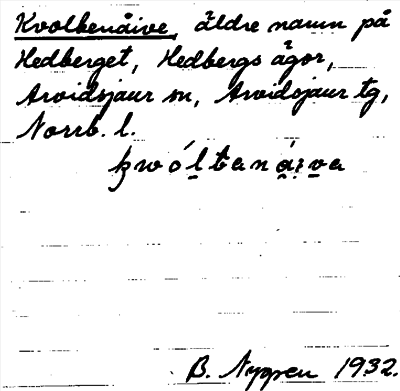 Kvolbenåive, äldre namn på
Hedberget, Hedbergs ägor,
Arvidsjaur sn, Arvidsjaur tg,
Norrb. l.
B. Nygren 1932.